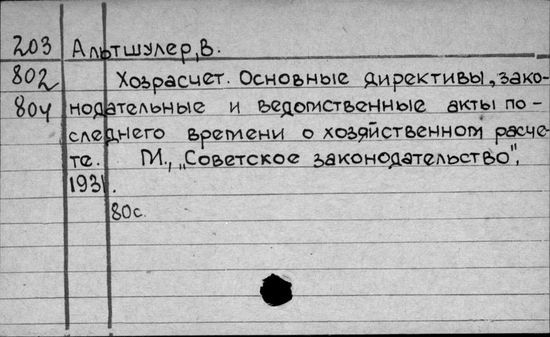 203 Альтшулер, В.
802 Хозрасчет. Основные директивы, зако-
804 нодательные и ведомственные акты по-
следнего времени о хозяйственном расче-
те. М., „Советское законодательство",
1931.
80с.